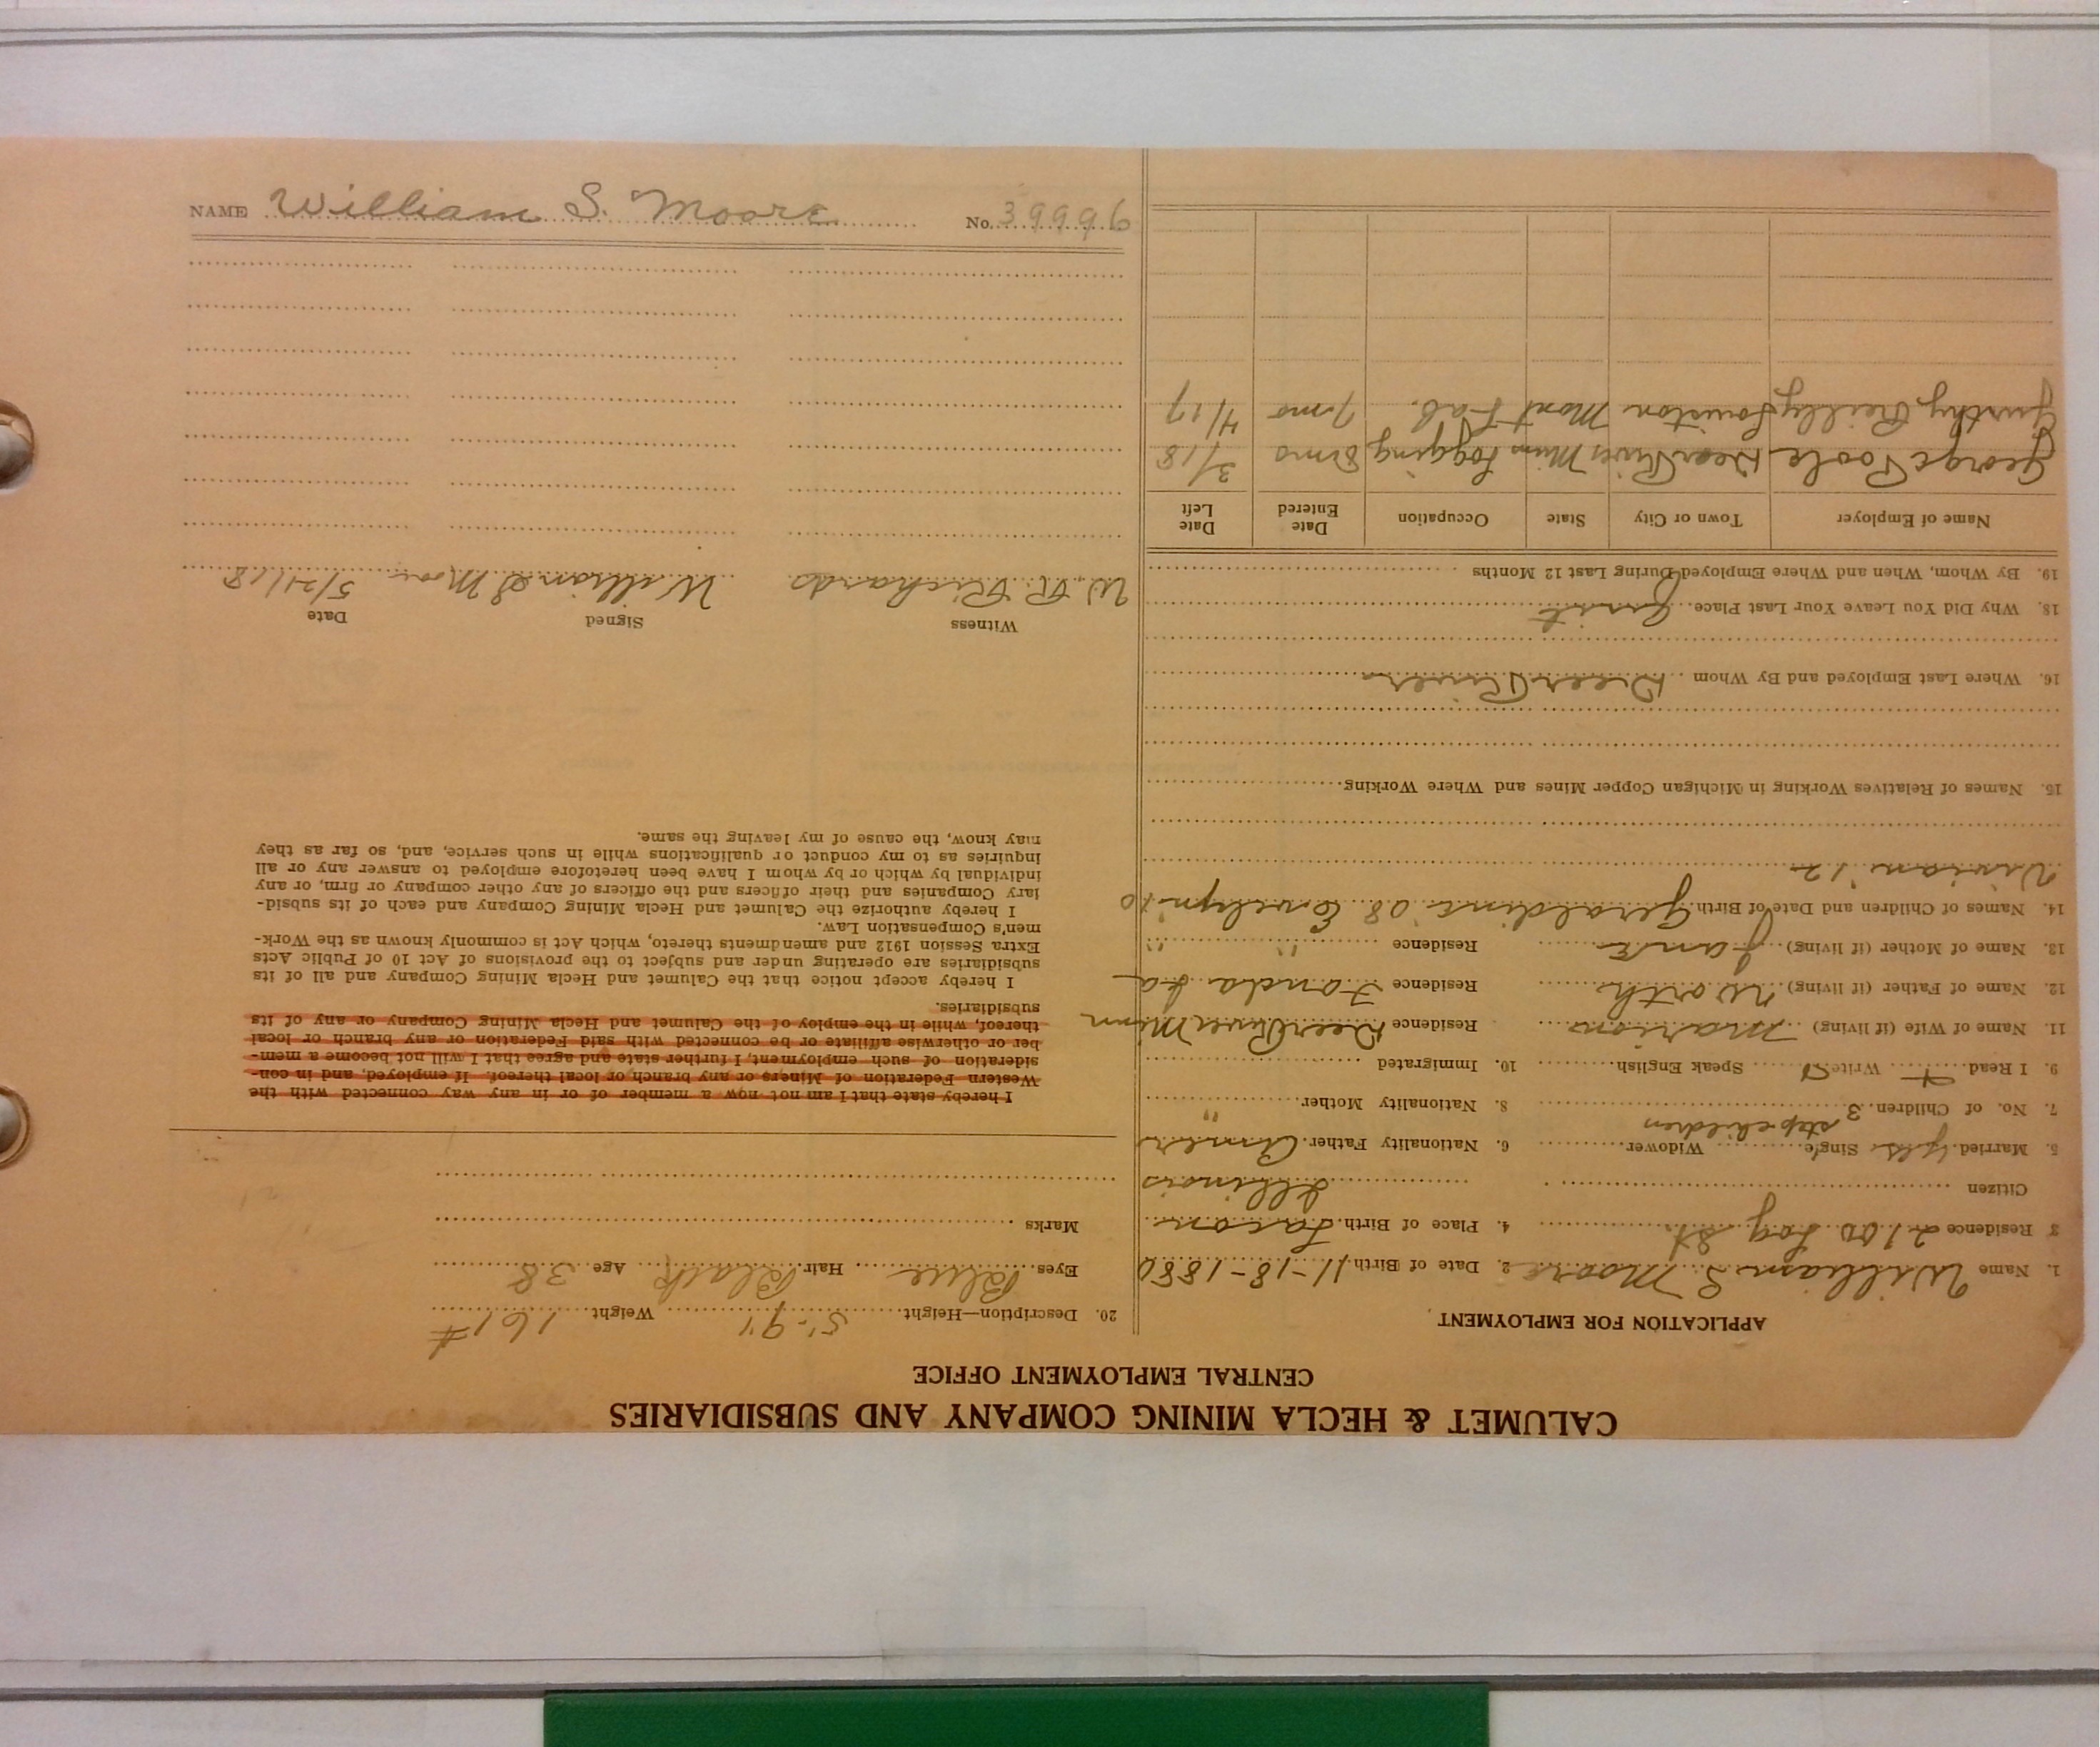 CALUMET & HECLA MINING COMPANY AND SUBSIDIARIES
CENTRAL EMPLOYMENT OFFICE
APPLICATION FOR EMPLOYMENT
1. Name William S Moore 2. Date of Birth 11-18-1880
3 Residence 2100 Log St. 4. Place of Birth Lacon
Citizen Illinois
5. Married yes Single Widower 6. Nationality Father Amer
step children
7. No. of Children 3 8. Nationality Mother "
9. I Read Write Speak English 10. Immigrated
11. Name of Wife (if living) Marion Residence Deer River Minn
12. Name of Father (if living) Worth Residence Fonda Ia
13. Name of Mother (if living) Jane Residence " "
14. Names of Children and Date of Birth Geraldine '08 Evelyn '10
Vivian '12
15. Names of Relatives Working in Michigan Copper Mines and Where Working
16. Where Last Employed and By Whom Deer River
18. Why Did You Leave Your Last Place Quit
19. By Whom, When and Where Employed During Last 12 Months
Name of Employer Town or City State Occupation Date Entered Date Left
George Poole Deer River Minn Logging 8 mo 3/18
Reilly Mont Lab. 7 mo 4/17
20. Description—Height 5'-9" Weight 161#
Eyes Blue Hair Black Age 38
Marks
I hereby state that I am not now a member of or in any way connected with the
Western Federation of Miners or any branch or local thereof. If employed, and in con-
sideration of such employment, I further state and agree that I will not become a mem-
ber or otherwise affiliate or be connected with said Federation or any branch or local
thereof, while in the employ of the Calumet and Hecla Mining Company or any of its
subsidiaries.
I hereby accept notice that the Calumet and Hecla Mining Company and all of its
subsidiaries are operating under and subject to the provisions of Act 10 of Public Acts
Extra Session 1912 and amendments thereto, which Act is commonly known as the Work-
men's Compensation Law.
I hereby authorize the Calumet and Hecla Mining Company and each of its subsid-
iary Companies and their officers and the officers of any other company or firm, or any
individual by which or by whom I have been heretofore employed to answer any or all
inquiries as to my conduct or qualifications while in such service, and, so far as they
may know, the cause of my leaving the same.
Witness Signed Date
W. R. Richards William S Moore 5/21/18
NAME William S. Moore No. 39996